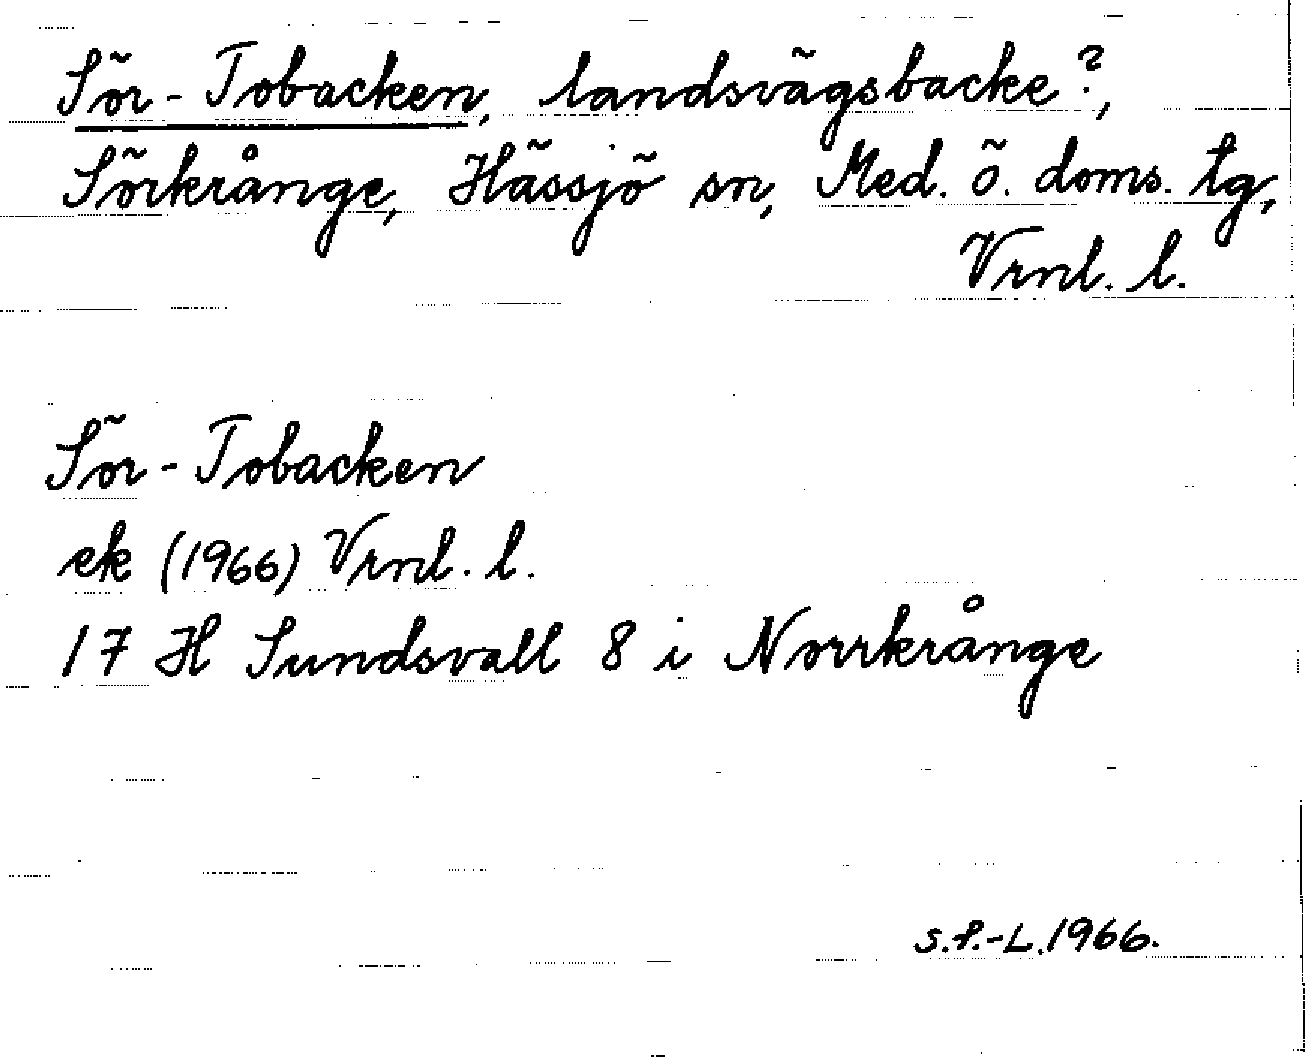 Sör-Tobacken, landsvägsbacke?,
Sörkrånge, Hässjö sn, Med. ö. doms. tg,
Vrnl. l.
Sör-Tobacken
ek (1966) Vrnl. l.
17 H Sundsvall 8 i Norrkrånge
S.P.-L. 1966.